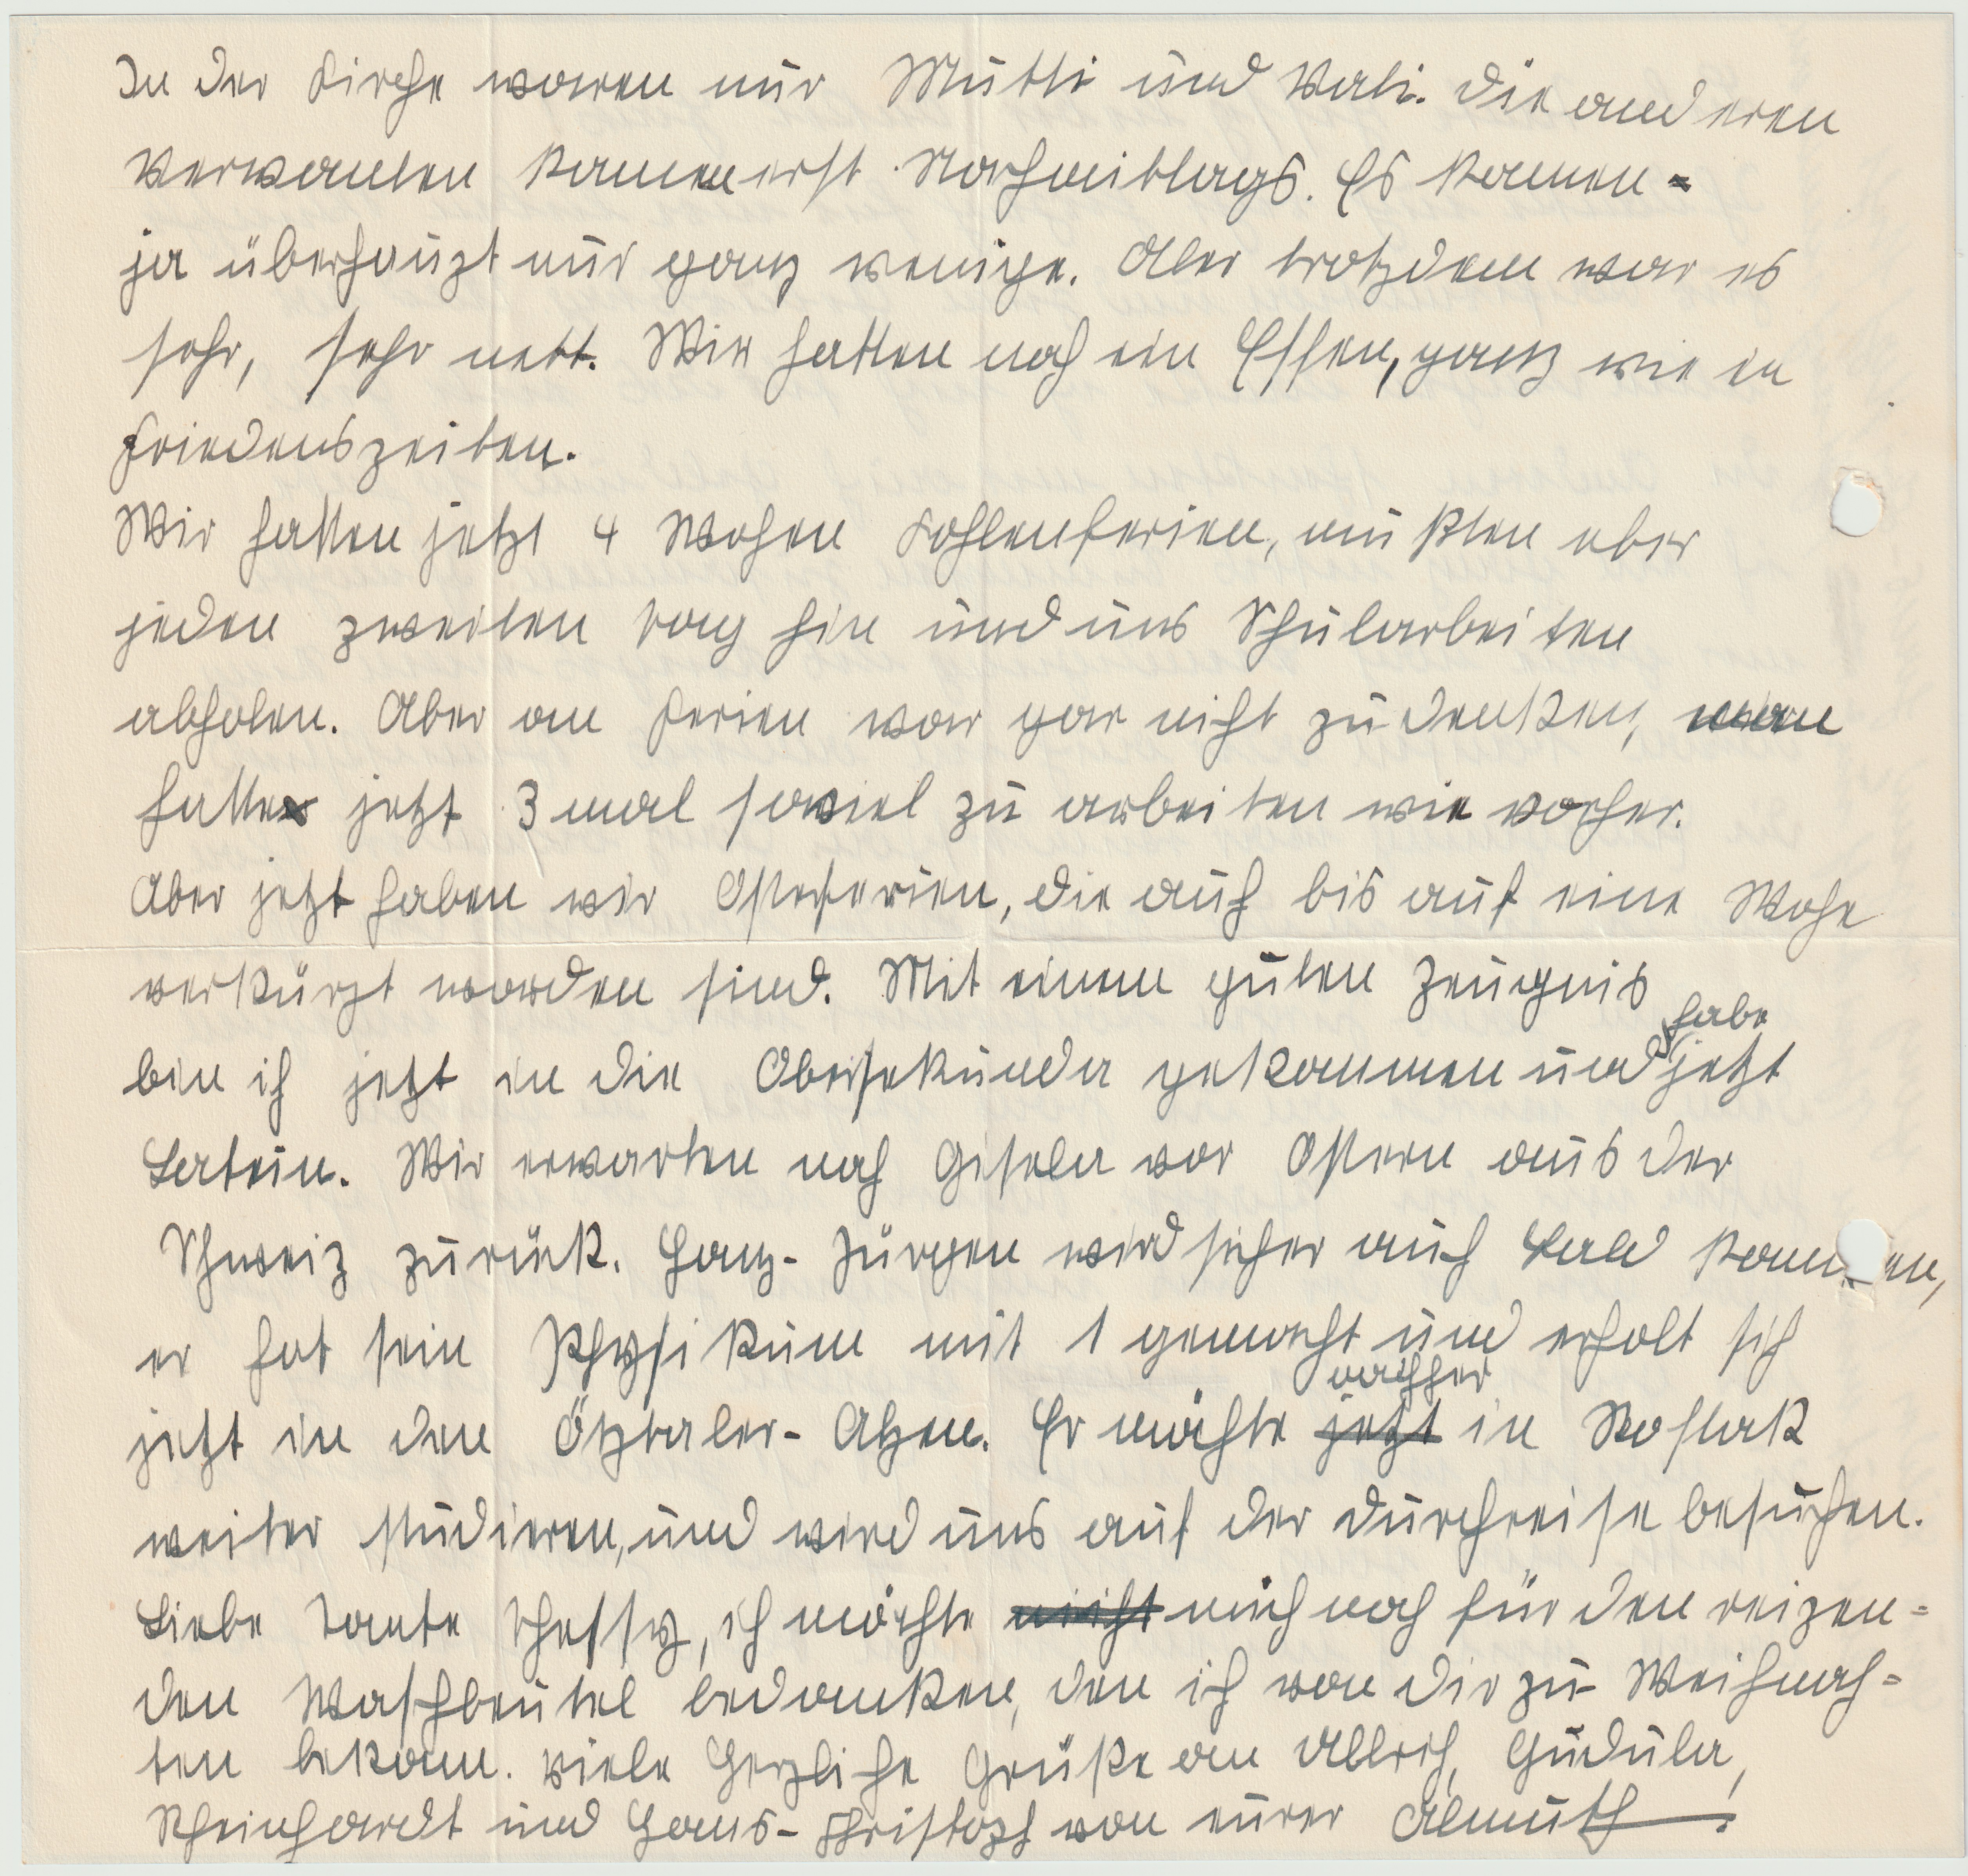 In der Kirche waren nur Mutti und Vati. Die anderen
Verwanten kamen erst Nachmittags. Es kamen
ja überhaupt nur ganz wenige. Aber trotzdem war es
sehr, sehr nett. Wir hatten noch ein Essen, ganz wie in
Friedenszeiten.
Wir hatten jetzt 4 Wochen Kohlenferien, mußten aber
jeden zweiten Tag hin und uns Schularbeiten
abholen. Aber an Ferien war gar nicht zu denken, man
hatte jetzt 3 mal soviel zu arbeiten wie vorher.
Aber jetzt haben wir Osterferien, die auch bis auf eine Woche
verkürzt worden sind. Mit einem guten Zeugnis
bin ich jetzt in die Obersekunda gekommen und habe jetzt
Latein. Wir erwarten noch Gisela vor Ostern aus der
Schweiz zurück. Hanz-Jürgen wird sicher auch bald kommen,
er hat sein Physikum mit 1 gemacht und erholt sich
jetzt in den Ötztaler-Alpen. Er möchte jetzt nachher in Rostock
weiter studieren, und wird uns auf der Durchreise besuchen.
Liebe Tante Thessy, ich möchte nicht mich noch für den reizen=
den Waschbeutel bedanken, den ich von dir zu Weihnach=
ten bekam. Viele Herzliche Grüße an Gudula,
Rheinhardt und Hans-Christoph von eurer Almuth.